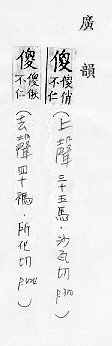 廣韻
傻 傻俏不仁
(上聲三十五馬·沙瓦切 p310)
傻 傻俕不仁
(去聲四十禡·所化切 p424)